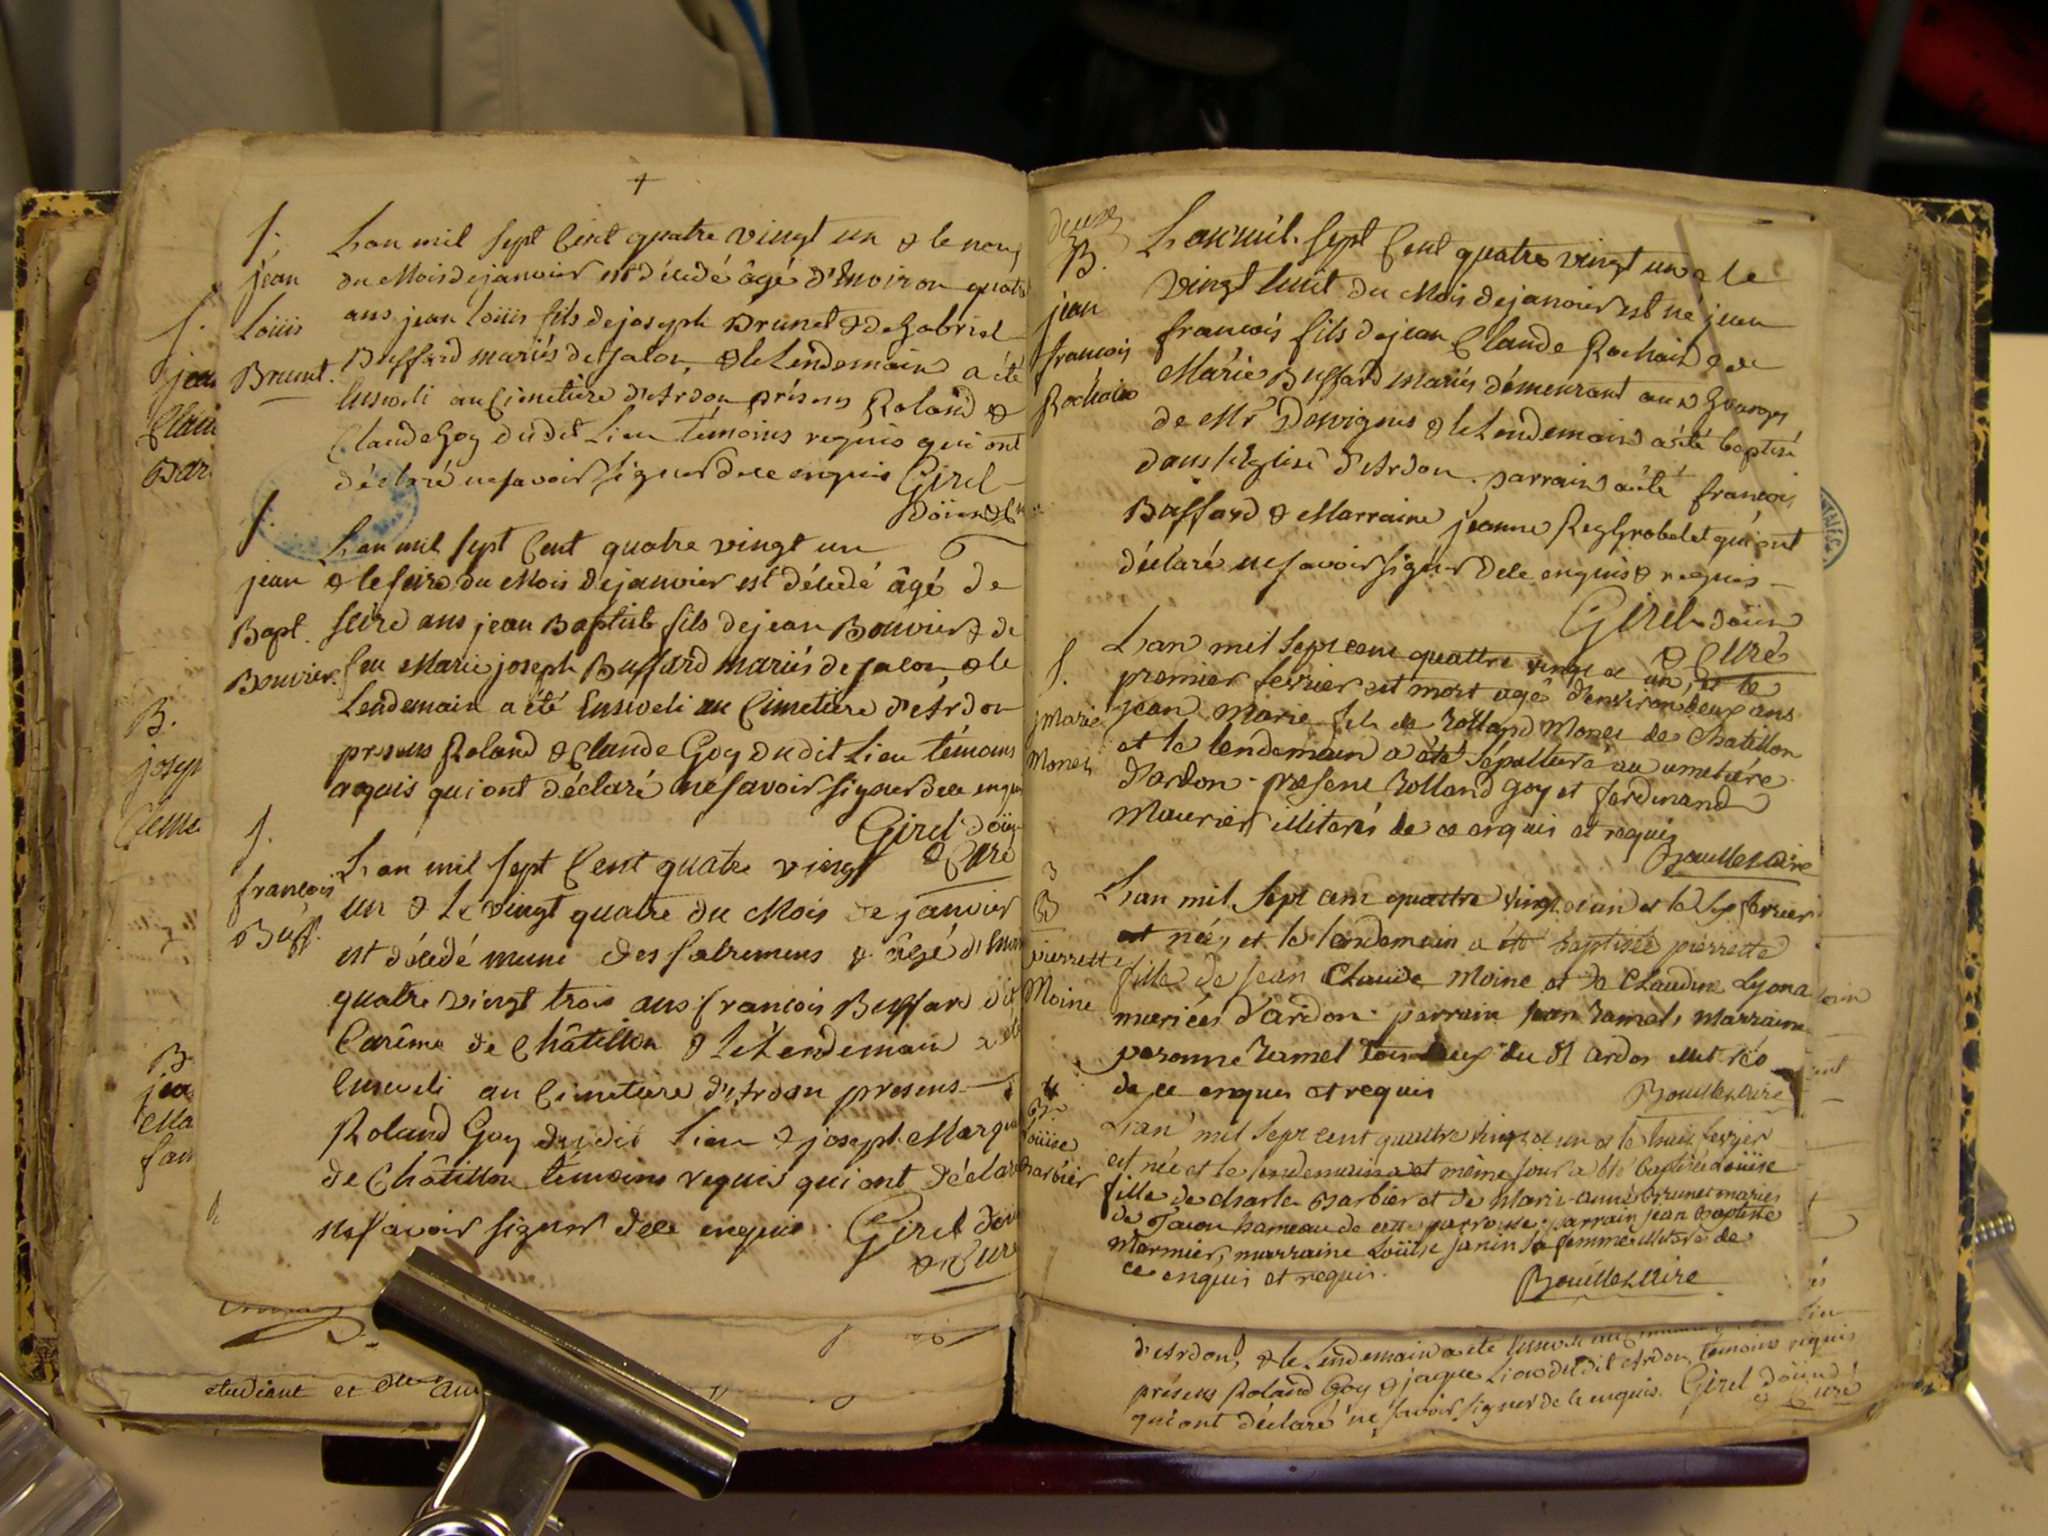 +
S.
jean
Loüis
Brunet.
L'an mil sept Cent quatre vingt un & le neuf
du Mois de janvier est décédé âgé d'Environ quatre
ans jean Loüis fils de joseph Brunet & de Gabriel
Buffard mariés de Jalon, & le Lendemain a été
Enseveli au Cimetiere d'Ardon présens Roland &
Claude Goy dudit Lieu témoins requis qui ont
déclaré ne savoir signer de ce enquis Girel
Doüen &
S.
jean
Bapt.
Bouvier.
L'an mil sept Cent quatre vingt un
& le seize du Mois de janvier est décédé âgé de
seize ans jean Baptiste fils de jean Bouvier & de
feu Marie joseph Buffard mariés de Jalon, & le
Lendemain a été Enseveli au Cimetiere d'Ardon
presens Roland & Claude Goy dudit Lieu témoins
requis qui ont déclaré ne savoir signer de ce enquis
Girel doüen
& Curé
S.
françois
Buff.
L'an mil sept Cent quatre vingt
un & le vingt quatre du Mois de janvier
est décédé muni des sacremens & âgé d'Environ
quatre vingt trois ans françois Buffard dit
Carême de Châtillon & le Lendemain a été
Enseveli au Cimetiere d'Ardon presens
Roland Goy dudit Lieu & joseph Marquis
de Châtillon témoins requis qui ont déclaré
ne savoir signer de ce enquis Girel doüen
& Curé
S.
jean
Claud
B.
joseph
B.
jea
Ma
fan
etudiant et
B.
jean
françois
Rochaix
L'an mil sept Cent quatre vingt un & le
vingt huit du Mois de janvier est né jean
françois fils de jean Claude Rochaix & de
Marie Buffard mariés démeurant aux Granges
de Mr Desvignes & le Lendemain a été baptisé
dans l'Eglise d'Ardon. parrain a été françois
Buffard & Marraine jeanne Reygrobelet qui ont
déclaré ne savoir signer de ce enquis & requis
Girel doüen
& Curé
S.
jMarie
Monet
L'an mil sept cent quattre vingt et un, et le
premier fevrier est mort agé d'environ deux ans
jean Marie fils de Rolland Monet de Chatillon
et le lendemain a été sépulturé au cimetiére
d'ardon. présent Rolland goy et ferdinand
Maurier illiterés de ce enquis et requis
Bouillet vire
3
B
pierrette
Moine
L'an mil sept cent quattre vingt et un et le sept fevrier
est née, et le lendemain a été baptisée pierrette
fille de jean Claude Moine et de Claudine Lyona
mariés d'ardon. parrain jean Ramel, Marraine
peronne Ramel tous deux du dt ardon illiterés
de ce enquis et requis
Bouillet vire
4
B
Loüise
Barbier
L'an mil sept cent quattre vingt et un et le huit fevrier
est née et le lendemain et même jour a été baptisée Loüise
fille de charle Barbier et de Marie-anne Brunet mariés
de Jalon hameau de cette parroisse. parrain jean baptiste
Mermier, marraine Loüise janin sa femme illiteré de
ce enquis et requis.
Bouillet vire
d'Ardon, & le Lendemain a eté Enseveli au
présens Roland Goy & jaque Lion dudit Ardon témoins requis
qui ont déclaré ne savoir signer de ce enquis. Girel doüen
& Curé